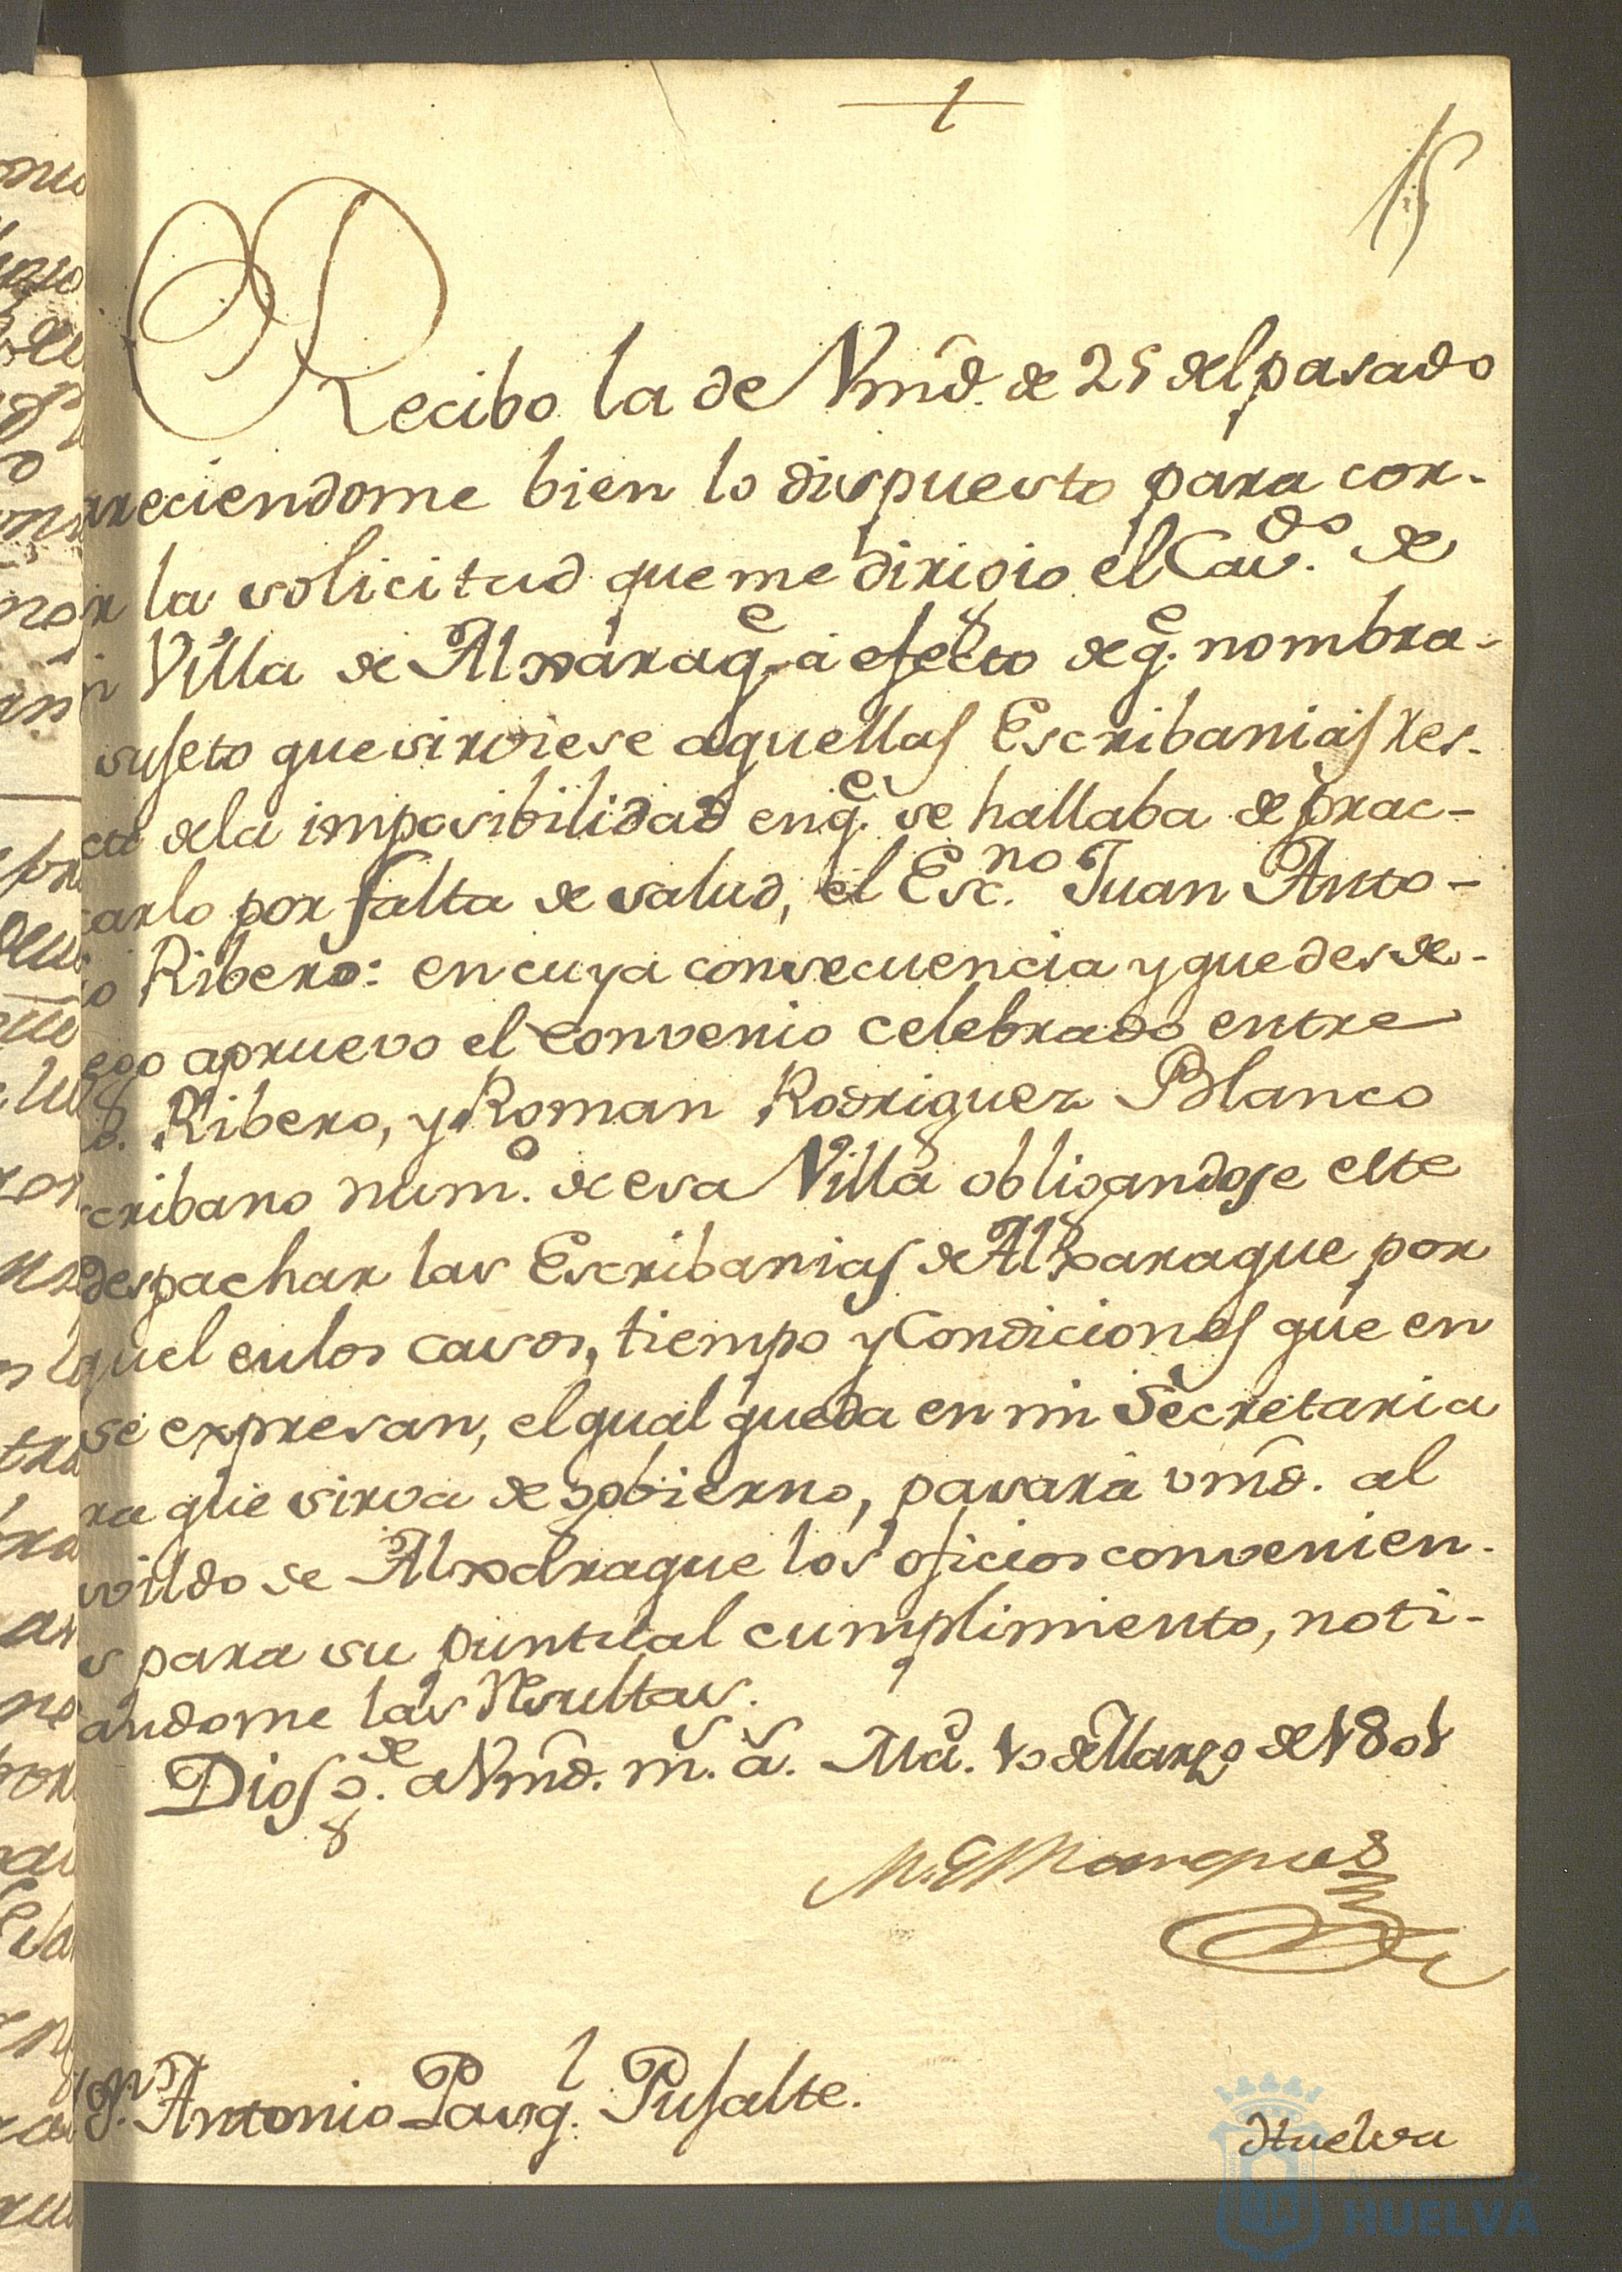 15
Recibo la de Vmd. de 25 del pasado
areciendome bien lo dispuesto para cor-
r la solicitud que me dirigio el Cavdo. de
i Villa de Alxaraqe. a efecto de qe. nombra-
sujeto que sirviese aquellas Escribanias res-
cto dela imposibilidad en qe. se hallaba de prac-
carlo por falta de salud, el Escno. Juan Anto-
io Ribero: en cuya consecuencia y que desde
ego apruevo el convenio celebrado entre
Ribero, y Roman Rodriguez Blanco
cribano numo. de esa Villa obligandose este
despachar las Escribanias de Alxaraque por
quel en los casos, tiempo y Condiciones que en
se expresan, el qual queda en mi Secretaria
ra que sirva de gobierno, pasará vmd. al
vildo de Alxaraque los oficios convenien-
s para su puntual cumplimiento, noti-
andome las resultas.
Dios gde. a Vmd. ms. as. Md. 10 de Marzo de 1801
M. El Marques
Antonio Pasql. Pusalte.
Huelva
HUELVA